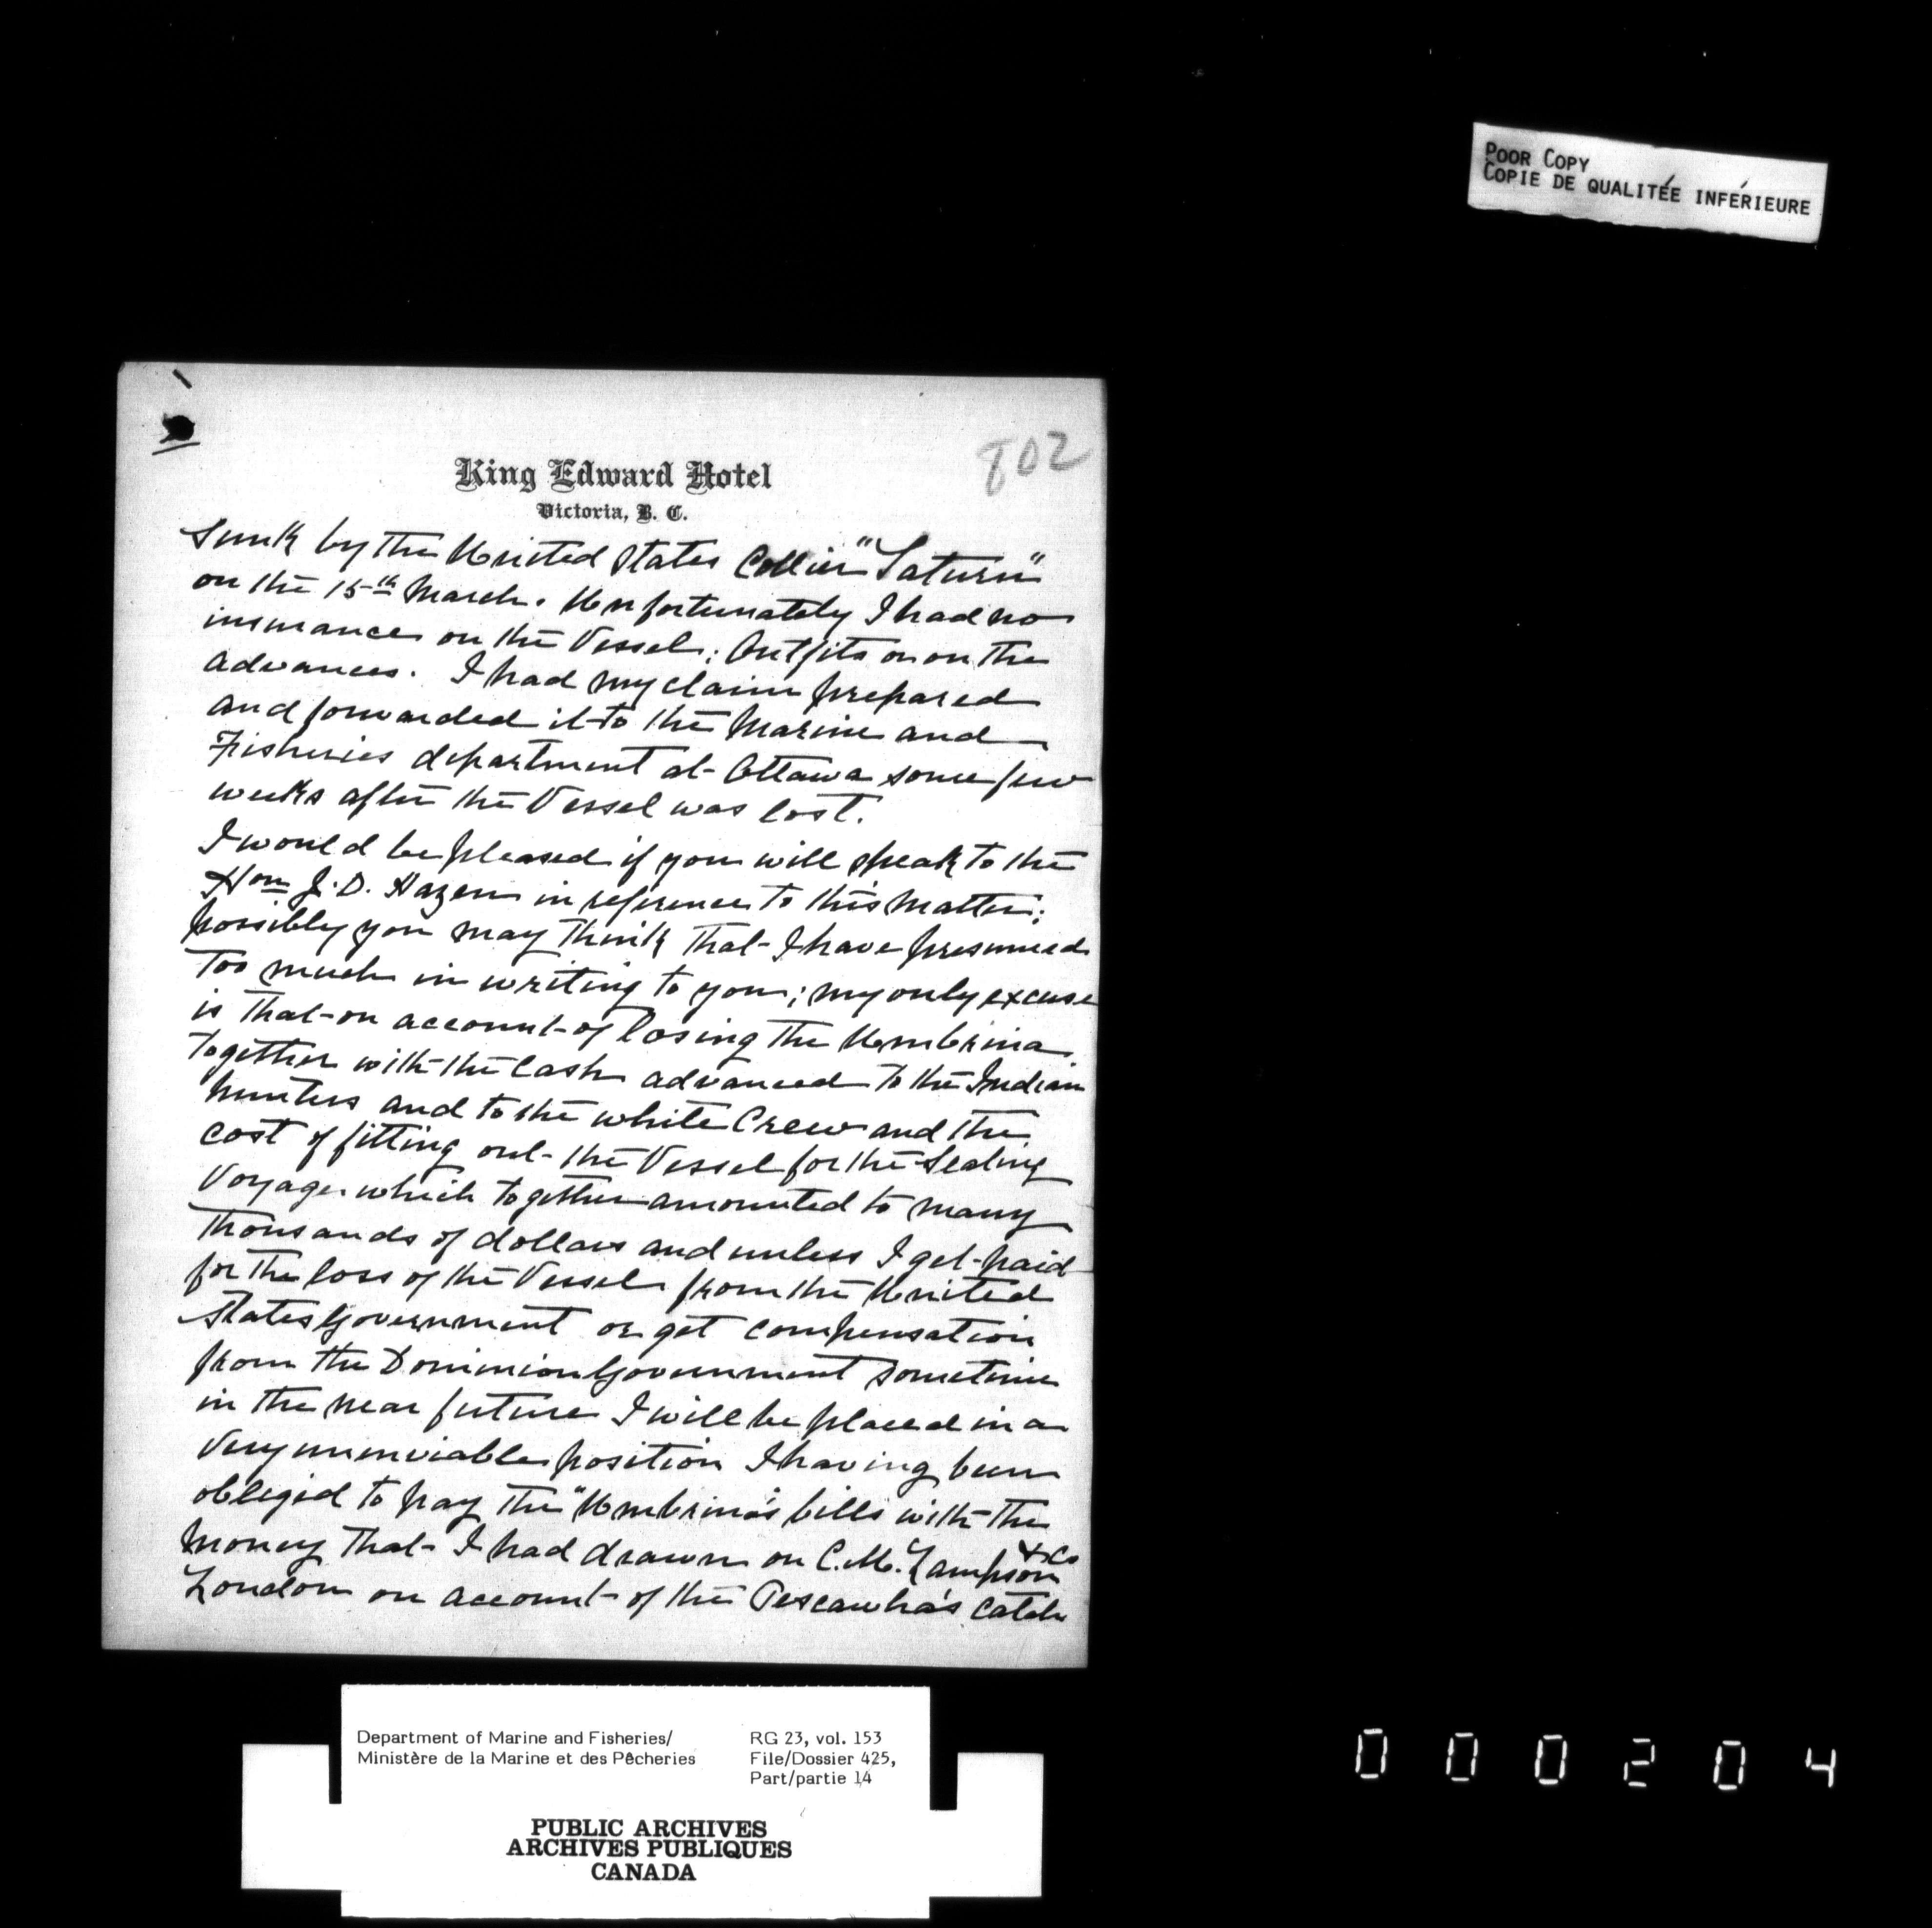 POOR COPY
COPIE DE QUALITÉE INFÉRIEURE
802
King Edward Hotel
Victoria, B. C.
Sunk by the United States Collier "Saturn"
on the 15th March. Unfortunately I had no
insurance on the Vessel; Outfits or on the
advances. I had my claim prepared
and forwarded it to the Marine and
Fisheries department at Ottawa some few
weeks after the Vessel was lost.
I would be pleased if you will speak to the
Hon J. D. Hazen in reference to this matter;
possibly you may think that I have presumed
too much in writing to you; my only excuse
is that on account of losing the Umbrina
together with the Cash advanced to the Indian
hunters and to the white Crew and the
cost of fitting out the Vessel for the Sealing
Voyage which together amounted to many
thousands of dollars and unless I get paid
for the loss of the Vessel from the United
States Government or get compensation
from the Dominion Government sometime
in the near future I will be placed in a
very unenviable position I having been
obliged to pay the "Umbrina's bills with the
money that I had drawn on C. M. Lampson & Co
London on account of the Pescawha's catch
Department of Marine and Fisheries/
Ministère de la Marine et des Pêcheries
RG 23, vol. 153
File/Dossier 425,
Part/partie 14
PUBLIC ARCHIVES
ARCHIVES PUBLIQUES
CANADA
000204